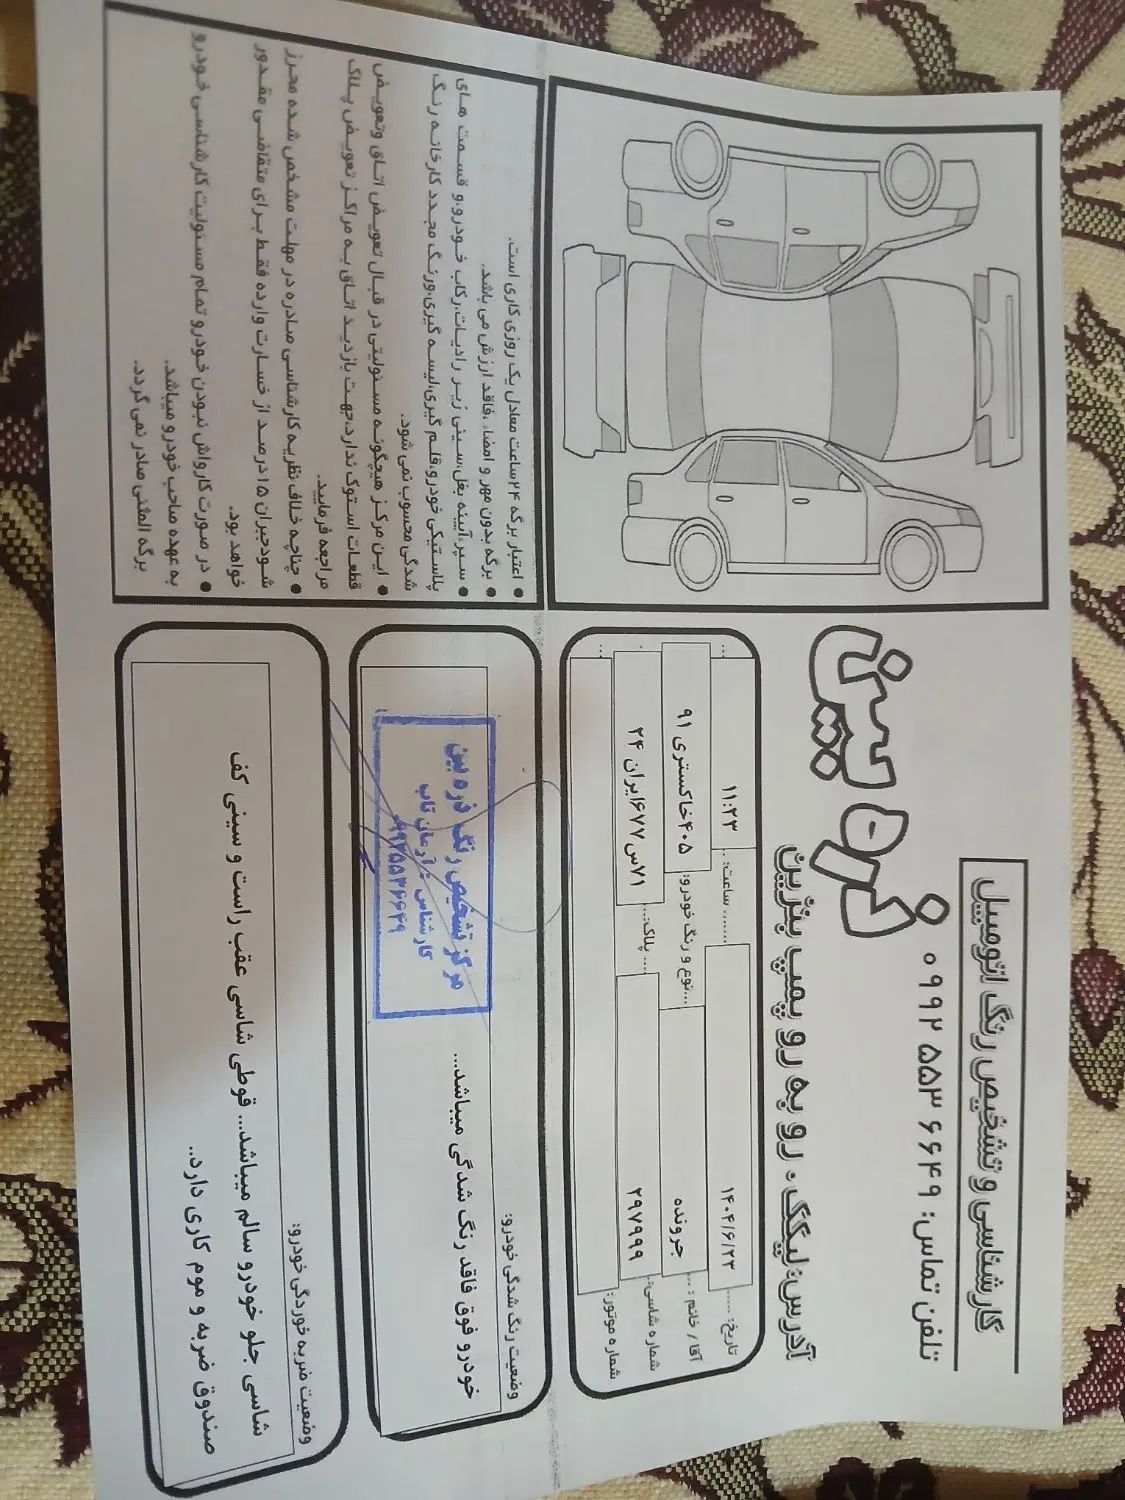 کارشناسی و تشخیص رنگ اتومبیل
تلفن تماس: ۰۹۹۲ ۵۵۳ ۶۶۴۹
ذره بین
آدرس: لیکک ، رو به رو پمپ بنزین
تاریخ: ..... ۱۴۰۴/۶/۲۳ ....... ساعت: ... ۱۱:۲۳
آقا / خانم : ... جرونده ...نوع و رنگ خودرو: ۴۰۵خاکستری ۹۱
شماره شاسی: ۲۹۷۹۹۹ ... پلاک: ... ۷۱س۶۷۷ایران ۲۴
شماره موتور:
وضعیت رنگ شدگی خودرو:
خودرو فوق فاقد رنگ شدگی میباشد...
مرکز تشخیص رنگ ذره بین
کارشناس : آرمان تاب
۰۹۹۲۵۵۳۶۶۴۹
وضعیت ضربه خوردگی خودرو:
شاسی جلو خودرو سالم میباشد... قوطی شاسی عقب راست و سینی کف
صندوق ضربه و موم کاری دارد..
● اعتبار برگه ۲۴ساعت معادل یک روزی کاری است.
● برگه بدون مهر و امضاء ،فاقد ارزش می باشد.
● سپر،آیینه بغل،سینی زیر رادیات،رکاب خودرو،و قسمت های
پلاستیکی خودرو،قلم گیری،لیسه گیری،ورنگ مجدد کارخانه رنگ
شدگی محسوب نمی شود.
● این مرکز هیچگونه مسئولیتی در قبال تعویض اتاق وتعویض
قطعات استوک ندارد،جهت بازدید اتاق به مراکز تعویض پلاک
مراجعه فرمایید.
● چناچه خلاف نظریه کارشناسی صادره در مهلت مشخص شده محرز
شودجبران ۱۵درصد از خسارت وارده فقط برای متقاضی مقدور
خواهد بود.
● در صورت کارواش نبودن خودرو تمام مسئولیت کارشناسی خودرو
به عهده صاحب خودرو میباشد.
برگه المثنی صادر نمی گردد.